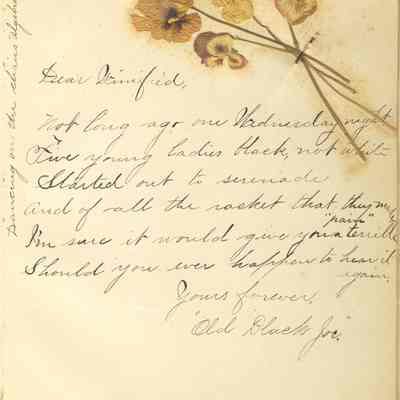 Dear Winifred,
Not long ago one Wednesday night
Five young ladies black, not white
Started out to serenade
And of all the racket that they made
"pain"
I'm sure it would give you a terrible
Should you ever happen to hear it
again.
Yours forever,
"Old Black Joe."
Dancing on the